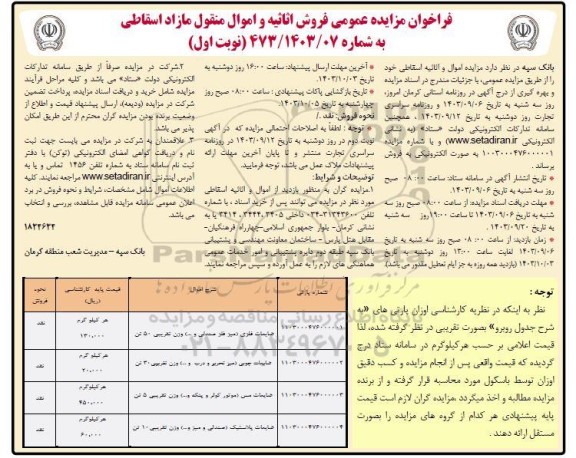 فراخوان مزایده عمومی فروش اثاثیه و اموال منقول مازاد اسقاطی
به شماره ۴۷۳/۱۴۰۳/۰۷ (نوبت اول)
بانک سپه در نظر دارد مزایده اموال و اثاثیه اسقاطی خود
را از طریق مزایده عمومی، با جزئیات مندرج در اسناد مزایده
و بهره گیری از درج آگهی در روزنامه استانی کرمان امروز،
روز سه شنبه به تاریخ ۱۴۰۳/۰۹/۰۶ و روزنامه سراسری
تجارت روز دوشنبه به تاریخ ۱۴۰۳/۰۹/۱۲ ، همچنین
سامانه تدارکات الکترونیکی دولت «ستاد» (به نشانی
الکترونیکی www.setadiran.ir) و با شماره مزایده
۱۰۰۳۰۰۰۴۷۶۰۰۰۰۰۱ به صورت الکترونیکی به فروش
برساند .
* تاریخ انتشار آگهی در سامانه ستاد: ساعت ۰۸:۰۰ صبح
روز سه شنبه به تاریخ ۱۴۰۳/۰۹/۰۶.
* مهلت دریافت اسناد مزایده: از ساعت ۰۸:۰۰ صبح روز سه
شنبه به تاریخ ۱۴۰۳/۰۹/۰۶ تا ساعت ۱۹:۰۰ روز سه شنبه
به تاریخ ۱۴۰۳/۰۹/۲۰ .
* زمان بازدید: از ساعت ۰۸:۰۰ صبح روز سه شنبه به تاریخ
۱۴۰۳/۰۹/۰۶ لغایت ساعت ۱۳:۰۰ روز دوشنبه به تاریخ
۱۴۰۳/۱۰/۰۳ (بازدید همه روزه به جز ایام تعطیل مقدور می باشد).
* آخرین مهلت ارسال پیشنهاد: ساعت ۱۶:۰۰ روز دوشنبه به
تاریخ ۱۴۰۳/۱۰/۰۳.
* تاریخ بازگشایی پاکات پیشنهادی : ساعت ۰۸:۰۰ صبح روز
چهارشنبه به تاریخ ۱۴۰۳/۱۰/۰۵.
نحوه فروش: نقد ./
* توجه : لطفاً به اصلاحات احتمالی مزایده که در آگهی
نوبت دوم در روز دوشنبه به تاریخ ۱۴۰۳/۰۹/۱۲ در روزنامه
سراسری تجارت منتشر و تا پایان آخرین مهلت ارائه
پیشنهادات ملاک عمل می باشد، توجه فرمایید.
توضیحات و شرایط:
۱.مزایده گران به منظور بازدید از اموال و اثاثیه اسقاطی
مورد نظر در مزایده می توانند پس از خرید اسناد ، با شماره
تلفن ۳۱۲۴۳۶۰۰-۰۳۴ داخلی ۳۴۰۵، ۳۴۴۴، ۳۴۱۴ یا به
نشانی کرمان- بلوار جمهوری اسلامی-چهارراه فرهنگیان-
مقابل هتل پارس - ساختمان معاونت مهندسی و پشتیبانی
بانک سپه طبقه دوم دایره پشتیبانی و امور خدمات عمومی
هماهنگی های لازم را به عمل آورده و سپس مراجعه نمایند.
۲.شرکت در مزایده صرفاً از طریق سامانه تدارکات
الکترونیکی دولت «ستاد» می باشد و کلیه مراحل فرآیند
مزایده شامل خرید و دریافت اسناد مزایده، پرداخت تضمین
شرکت در مزایده (ودیعه)، ارسال پیشنهاد قیمت و اطلاع از
وضعیت برنده بودن مزایده گران محترم از این طریق امکان
پذیر می باشد.
۳. علاقمندان به شرکت در مزایده می بایست جهت ثبت
نام و دریافت گواهی امضای الکترونیکی (توکن) با دفتر
ثبت نام سامانه ستاد به شماره تلفن ۱۴۵۶ تماس و یا به
آدرس اینترنتی www.setadiran.ir مراجعه نمایند. کلیه
اطلاعات اموال شامل مشخصات، شرایط و نحوه فروش در برد
اعلان عمومی سامانه مزایده قابل مشاهده، بررسی و انتخاب
می باشد.
۱۸۲۲۶۲۲
بانک سپه – مدیریت شعب منطقه کرمان
توجه :
نظر به اینکه در نظریه کارشناسی اوزان پارتی های «به
شرح جدول روبرو» بصورت تقریبی در نظر گرفته شده، لذا
قیمت اعلامی بر حسب هرکیلوگرم در سامانه ستاد درج
گردیده که قیمت واقعی پس از انجام مزایده و کسب دقیق
اوزان توسط باسکول مورد محاسبه قرار گرفته و از برنده
مزایده مطالبه و اخذ میگردد ،مزایده گران لازم است قیمت
پایه پیشنهادی هر کدام از گروه های مزایده را بصورت
مستقل ارائه دهند .
شماره پارتی شرح اموال قیمت پایه کارشناسی (ریال) نحوه فروش
۱۱۰۳۰۰۰۴۷۶۰۰۰۰۰۱ ضایعات فلزی (میز فلز صندلی و ...) وزن تقریبی ۵۰ تن هر کیلو گرم ۱۳۰,۰۰۰ نقد
۱۱۰۳۰۰۰۴۷۶۰۰۰۰۰۲ ضایعات چوبی (میز تحریر و درب و ...) وزن تقریبی ۳۰ تن هرکیلوگرم ۲۰,۰۰۰ نقد
۱۱۰۳۰۰۰۴۷۶۰۰۰۰۰۳ ضایعات مس (موتور کولر و پنکه و...) وزن تقریبی ۵ تن هرکیلوگرم ۴۵۰,۰۰۰ نقد
۱۱۰۳۰۰۰۴۷۶۰۰۰۰۰۴ ضایعات پلاستیک (صندلی و میز و...) وزن تقریبی ۱۰ تن هرکیلوگرم ۶۰,۰۰۰ نقد